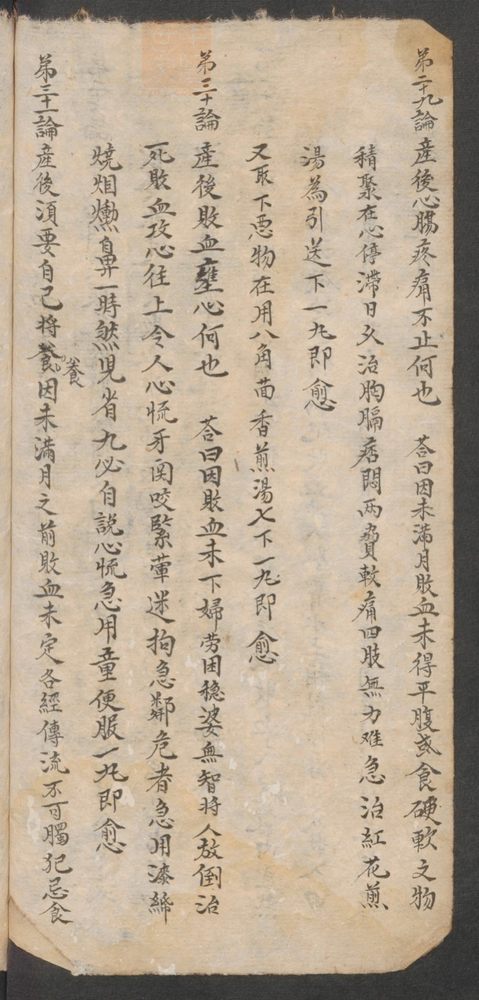 第二十九論 產後心腸疼痛不止何也 荅曰因未滿月敗血未得平腹或食硬軟之物
積聚在心停滯日久治胸膈痞悶兩脅較痛四肢無力难急治紅花煎
湯為引送下一丸即愈
又取下恶物在用八角茴香煎湯七下一丸即愈
第三十論 產後敗血壅心何也 荅曰因敗血未下婦劳困稳婆無智時人放倒治
死敗血攻心往上令人心慌牙関咬緊葷迷拘急鄰危者急用漆綿
燒烟燻鼻一時然見省九必自說心慌急用童便服一丸即愈
第三十一論 產後湏要自己将養因未滿月之前敗血未定各經傳流不可觸犯忌食
養